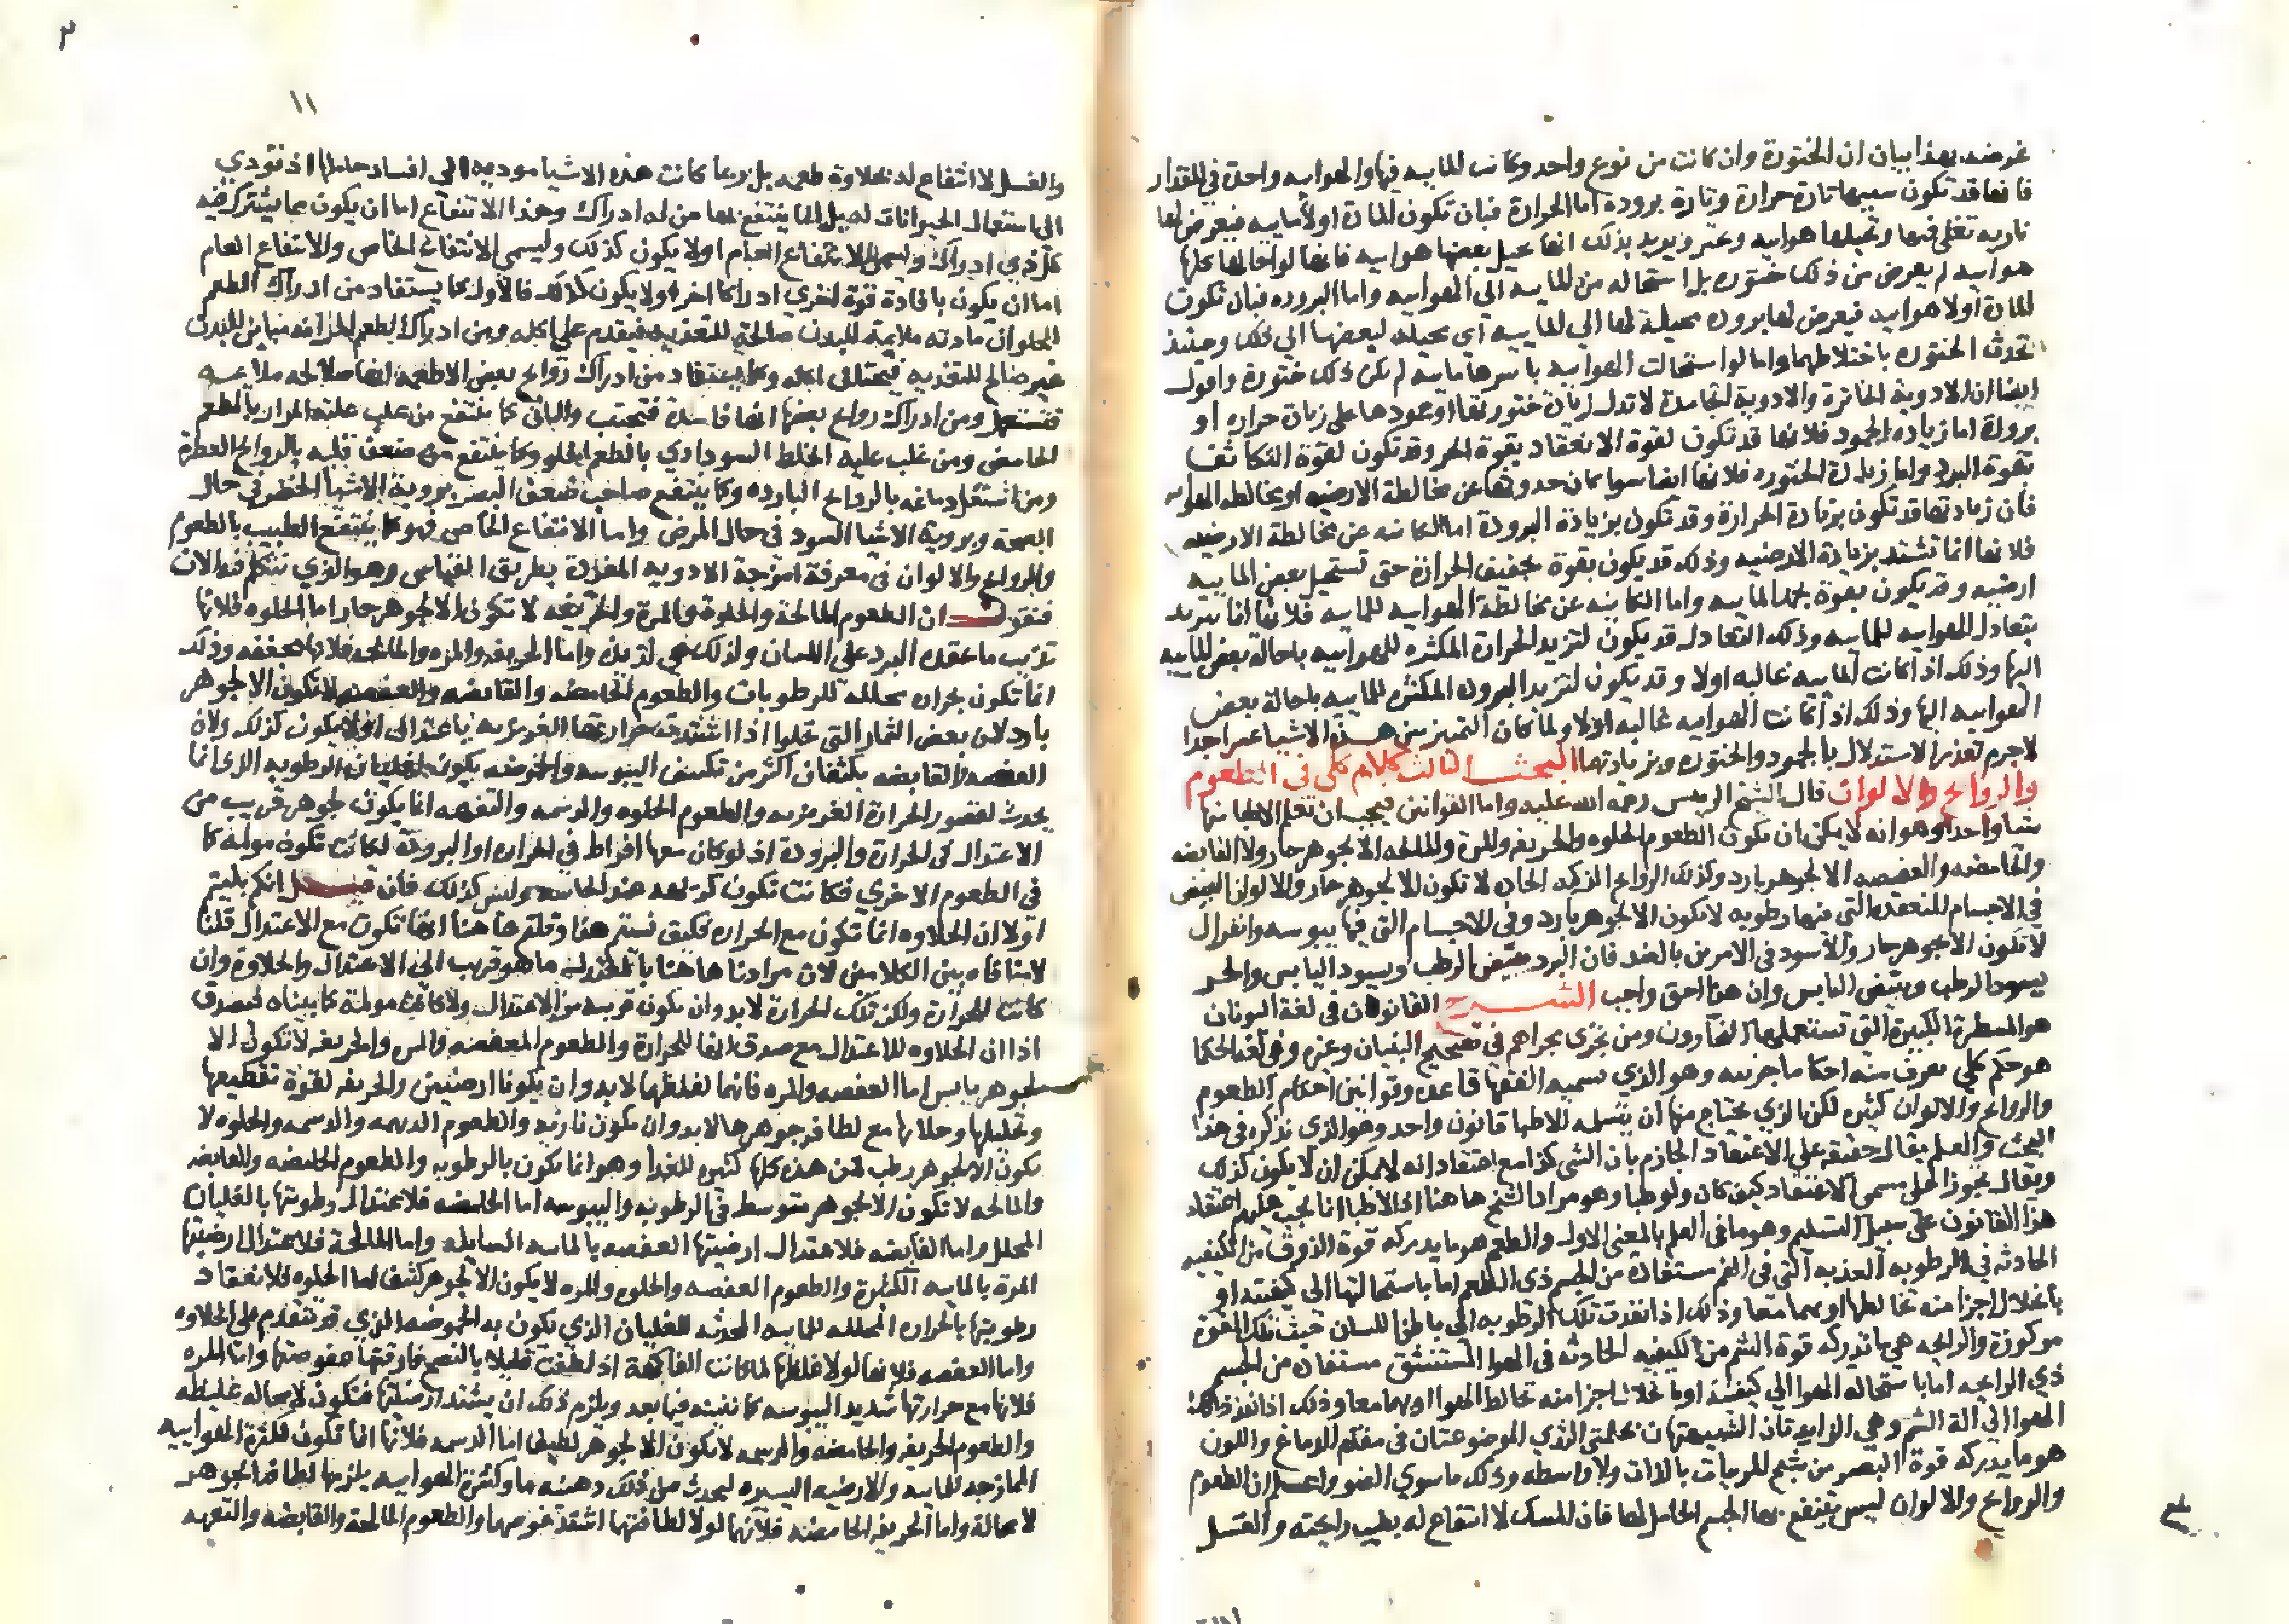 غرضه بهذا بيان ان الخثورة وان كانت من نوع واحد وكانت الماييه فيها والهواييه واحدة في المقدار
فانها قد تكون سببها تارة حرارة وتارة برودة اما الحرارة فبان تكون المادة اولا ماييه فيعرض لها
ناريه تغلى فيها وتحيلها هواييه وعبر ويريد بذلك انها تحيل بعضها هواييه فانها لو احالتها كلها
هواييه لم يعرض من ذلك خثوره بل استحاله من الماييه الى الهواييه واما البروده فبان تكون
المادة اولا هواييه فيعرض لها بروده محيلة لها الي الماييه اي محيله لبعضها الي ذلك وحينئذ
تحدث الخثوره باختلاطهما واما لو استحالت الهواييه باسرها ماييه لم يكن ذلك خثورة واقول
ايضا ان الادوية الخاثرة والادوية الجامدة لا تدل زيادة خثورتها او جمودها على زيادة حراره او
برودة اما زياده الجمود فلانها قد تكون لقوة الانعقاد بقوة الحر وقد تكون لقوة التكاثف
بقوة البرد واما زيادة الخثوره فلانها ايضا سوا كان حدوثها عن مخالطة الارضيه او مخالطه الهواييه
فان زيادتها قد تكون بزيادة الحرارة وقد تكون بزيادة البرودة اما الكاينه عن مخالطة الارضيه
فلانها انما تشتد بزيادة الارضيه وذلك قد يكون بقوة تجفيف الحرارة حتى تستحيل بعض الماييه
ارضيه وقد يكون بقوة تجمد الماييه واما الكاينه عن مخالطة الهواييه للماييه فلانها انما تزيد
بتعادل الهواييه للماييه وذلك التعادل قد يكون لتزيد الحرارة المكثره للهواييه باحالة بعض الماييه
اليها وذلك اذا كانت الماييه غالبه اولا وقد يكون لتزيد البروده المكثره للماييه باحالة بعض
الهواييه اليها وذلك اذا كانت الهواييه غالبه اولا ولما كان التمييز بين هذه الاشيا عسرا جدا
لاجرم تعذر الاستدلال بالجمود والخثوره وبزيادتهما البحث الثالث كلام كلي في الطعوم
والروايح والالوان قال الشيخ الرييس رحمة الله عليه واما القوانين فيجب ان تعلم الاطبا منها
شيا واحدا وهو انه لا يمكن ان تكون الطعوم الحلوه والحريفه والمرة والمالحه الا لجوهر حار ولا القابضه
والحامضه والعفصه الا لجوهر بارد وكذلك الروايح الذكيه الحاده لا تكون الا لجوهر حار والالوان البيض
في الاجسام المنعقده التي فيها رطوبه لا تكون الا لجوهر بارد وفي الاجسام التي فيها يبوسه وانفراك
لا تكون الا لجوهر حار والاسود في الامرين بالضد فان البرد يبيض الرطب ويسود اليابس والحر
يسود الرطب ويبيض اليابس وان هذا حق واجب الشرح القانون في لغة اليونان
هو المسطرة الكبيرة التي تستعملها النجارون ومن يجري مجراهم في تصحيح البنيان وغيره وفي لغة الحكما
هو حكم كلي يعرف منه احكام جزييه وهو الذي يسميه الفقها قاعده وقوانين احكام الطعوم
والروايح والالوان كثيره لكن الذي يحتاج منها ان يتسلمه الاطبا قانون واحد وهو الذي نذكره في هذا
البحث والعلم يقال حقيقه على الاعتقاد الجازم بان الشي كذا مع اعتقاد انه لا يمكن ان لا يكون كذلك
ويقال تجوزا على مسمى الاعتقاد كيف كان ولو ظنا وهو مراد الشيخ هاهنا اذ الاطبا انما يجب عليهم اعتقاد
هذا القانون على سبيل التسليم وهو مافي العلم بالمعنى الاول والطعم هو ما يدركه قوة الذوق من الكيفيه
الحادثه في الرطوبه العذبه التي في الفم مستفادة من الجسم ذي الطعم اما باستحالتها الى كيفيته او
بانحلال اجزا منه تخالطها او بهما معا وذلك اذا نفذت تلك الرطوبه الى باطن اللسان حيث تلك القوة
مركوزة والرايحه هي ما تدركه قوة الشم من الكيفيه الحادثه في الهوا المستنشق مستفاده من الجسم
ذي الرايحه اما باستحاله الهوا الي كيفيته او بانحلال اجزا منه تخالط الهوا او بهما معا وذلك اذا نفذ ذلك
الهوا الي الة الشم وهي الزايدتان الشبيهتان بحلمتي الثدي الموضوعتان في مقدم الدماغ واللون
هو ما يدركه قوة البصر من شبح المرييات بالذات ولا واسطه وذلك ما سوي الضو واعلم ان الطعوم
والروايح والالوان ليس ينتفع بها الجسم الحامل لها فان المسك لا انتفاع له بطيب رايحته والعسل
٣
١١
والعسل لا انتفاع له بحلاوة طعمه بل ربما كانت هذه الاشيا موديه الى افساد حاملها اذ تودي
الى استعمال الحيوانات له بل انما ينتفع بها من له ادراك وهذا الانتفاع اما ان يكون مما يشترك فيه
كل ذي ادراك وليسمى الانتفاع العام او لا يكون كذلك وليسمى الانتفاع الخاص والانتفاع العام
اما ان يكون بافادة قوة اخري ادراكا اخر او لا يكون كذلك فالاول كما يستفاد من ادراك الطعم
الحلو ان مادته ملايمة للبدن صالحة للتغذيه فيقدم على اكله ومن ادراك الطعم المر انه مباين للبدن
غير صالح للتغذيه فيجتنب اكله وكما يستفاد من ادراك روايح بعض الاطعمه انها صالحه ملايمه
فتستعمل ومن ادراك روايح بعضها انها فاسدة فتجتنب والثاني كما ينتفع من غلب عليه المرار بالطعم
الحامض ومن غلب عليه الخلط السوداوي بالطعم الحلو وكما ينتفع من ضعف قلبه بالروايح العطرة
ومن اشتعل دماغه بالروايح البارده وكما ينتفع صاحب ضعف البصر بروية الاشيا الخضر في حال
الصحة وبروية الاشيا السود في حال المرض واما الانتفاع الخاص فهو كما ينتفع الطبيب بالطعوم
والروايح والالوان في معرفة امزجة الادويه المفردة بطريق القياس وهو الذي نتكلم فيه الان
فنقول ان الطعوم المالحة والحلوة والمرة والحريفه لا تكون الا لجوهر حار اما الحلوه فلانها
تذيب ما عقده البرد على اللسان ولذلك هي لذيذه واما الحريفه والمره والمالحه فلانها مجففه وذلك
انما تكون بحراره محلله للرطوبات والطعوم الحامضه والقابضه والعفصه لا تكون الا لجوهر
بارد لان بعض الثمار التي تحلوا اذا اشتدت حرارتها الغريزيه باعتدال اولا يكون كذلك ولان
العفصه والقابضه يكثفان اكثر من تكثيف اليبوسه والحموضه يكون بغليان الرطوبه الذي انما
يحدث لقصور الحرارة الغريزيه والطعوم الحلوه والدسمه والتفهه انما يكون لجوهر قريب من
الاعتدال في الحرارة والبرودة اذ لو كان معها افراط في الحراره او البرودة لكانت تكون مولمه كما
في الطعوم الاخري فكانت تكون كريهه عند الحاسه وليس كذلك فان قيل انكم بينتم
اولا ان الحلاوه انما تكون مع الحراره فكيف نسيتم هذا وقلتم هاهنا انها تكون مع الاعتدال قلنا
لا منافاه بين الكلامين لان مرادنا هاهنا بالمعتدله ما هو قريب الى الاعتدال والحلاوة وان
كانت للحرارة ولكن تلك الحرارة لا بد وان تكون قريبه من الاعتدال والا كانت مولمة كما بيناه فيصدق
اذا ان الحلاوه للاعتدال مع صدق انها للحرارة والطعوم العفصه والمره والحريفه لا تكون الا
لجوهر يابس اما العفصه والمره فانهما لغلظهما لا بد وان يكونا ارضيتين والحريفه لقوة تقطيعها
وتحليلها وجلايها مع لطافة جوهرها لا بد وان تكون ناريه والطعوم التفهه والدسمه والحلوه لا
تكون الا لجوهر رطب لان هذه كلها كثيره الغذا وهو انما يكون بالرطوبه والطعوم الحامضه والقابضه
والمالحه لا تكون الا لجوهر متوسط في الرطوبه واليبوسه اما الحامضه فلاعتدال رطوبتها بالغليان
المحلل واما القابضه فلاعتدال ارضيتها العفصه بالماييه السايله واما المالحة فلاعتدال ارضيتها
المرة بالماييه الكثيرة والطعوم العفصه والحلوه والمره لا يكون الا لجوهر كثيف اما الحلوه فلانعقاد
رطوبتها بالحراره المحلله للماييه المحدثه للغليان الذي تكون به الحموضه الذي قد تتقدم على الحلاوه
واما العفصه فلانها لولا غلظها لما كانت الفاكهة اذ لطفت قليلا بالنضج فارقتها عفوصتها واما المره
فلانها مع حرارتها شديد اليبوسه كما نبينه فيما بعد ويلزم ذلك ان يشتد ارضيتها فتكون لا محاله غليظه
والطعوم الحريفه والحامضه والدسمه لا يكون الا لجوهر لطيف اما الدسمه فلانها انما تكون لكثرة الهواييه
الممازجه للماييه والارضيه اليسيره ليحدث من ذلك دهنيه ما وكثرة الهواييه يلزمها لطافة الجوهر
لا محالة واما الحريفه والحامضه فلانهما لولا لطافتهما لما اشتد غوصهما والطعوم المالحة والقابضه والتفهه